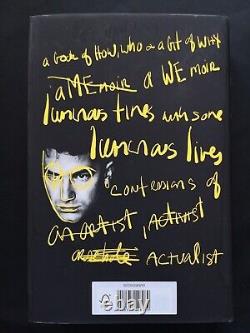 a book of How, who & a lot of Why
a MEmoir a WE moir
luminous times with some
luminous lives
Confessions of
an artist, Activist
Actualist